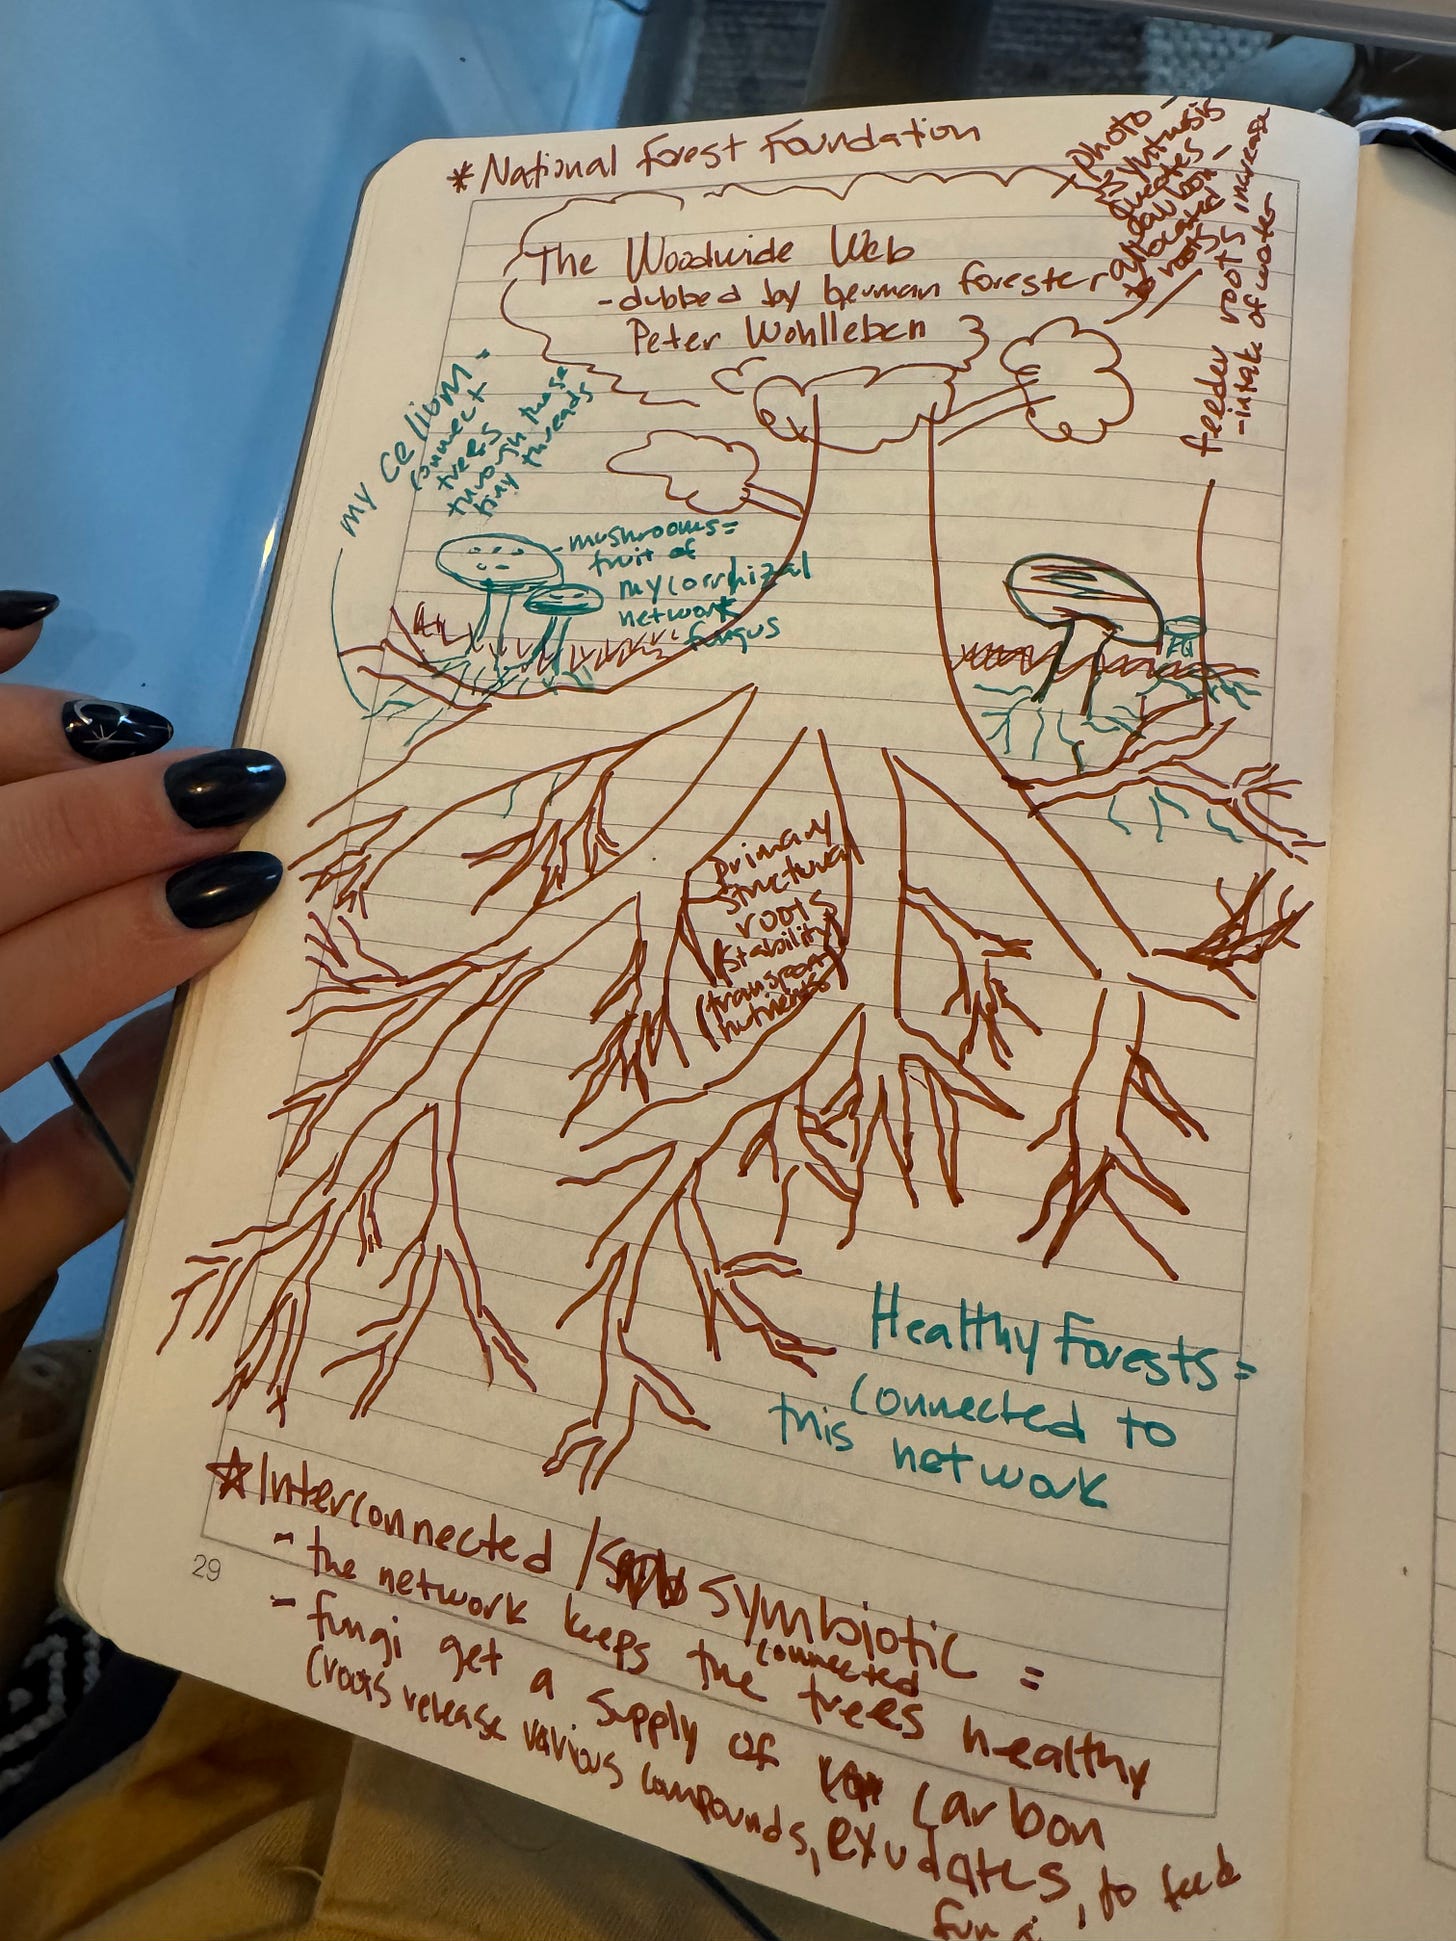 *National Forest Foundation
The Woodwide Web
-dubbed by German forester
Peter Wohlleben
- photo-
synthesis
creates
carbon-
allocated
to roots
feeder roots increase
-intake of water
mycelium-
connect
trees
through these
tiny threads
-mushrooms=
fruit of
mycorrhizal
network
fungus
primary
structural
roots
(stability)
(transport
nutrients)
Healthy Forests=
connected to
this network
☆Interconnected / symbiotic =
- the network keeps the connected trees healthy
- fungi get a supply of carbon
(roots release various compounds, exudates, to feed
fungi
29